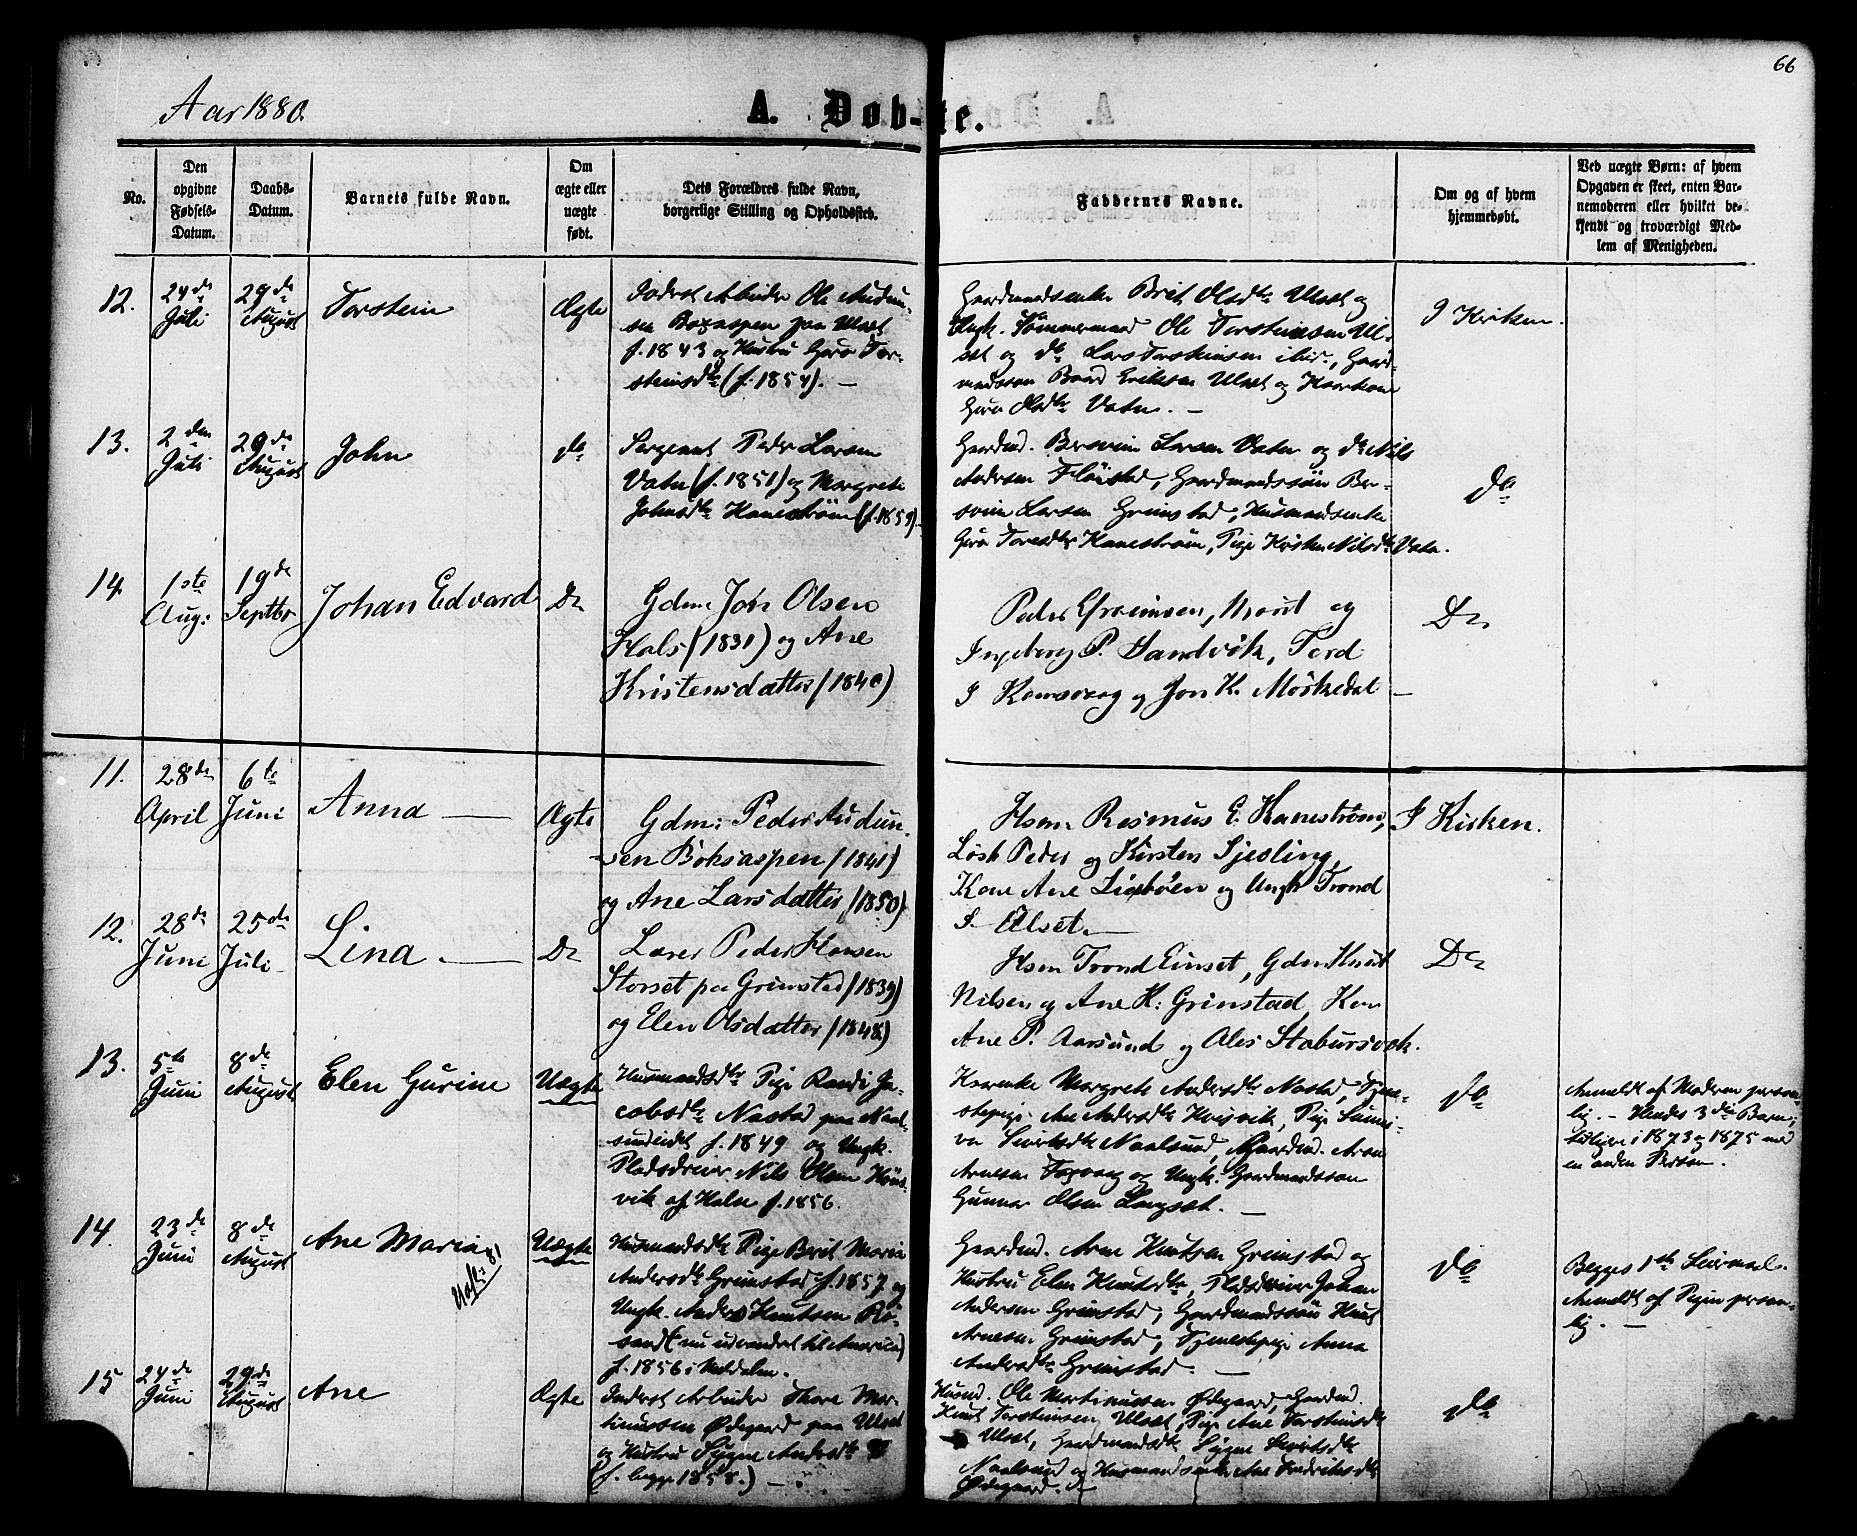 66
Aar 1880.
A. Døb-te.
No.
Den opgivne Fødsels-Datum.
Daabs-Datum.
Barnets fulde Navn.
Om ægte eller uægte født.
Dets Forældres fulde Navn, borgerlige Stilling og Opholdssted.
Faddernes Navne.
Om og af hvem hjemmedøbt.
Ved uægte Børn: af hvem Opgaven er skeet, enten Barnemoderen eller hvilket bekjendt og troværdigt Medlem af Menigheden.
12. 24de Juli 29de August Torstein Ægte
Inderst Arbeider Ole Audun-
sen Boxaspen paa Ulset
f. 1843 og Hustru Guro Tor-
steinsdtr (f. 1854). —
Gaardmandsenke Brit Olsdtr Ulset og
Ungk. Tømmermand Ole Torsteinsen Ul-
set og do Lars Torsteinsen ibid., Gaard-
mandsson Baard Eriksen Ulset og
Guro Olsdtr Vatn. —
I Kirken.
13. 2den Juli 29de August John do
Sergeant Peder Larsen
Vatn (f. 1851) og Margrete
Johnsdtr Kanestrøm (f. 1859).
Gaardmd. Larsen Vatn og do Nils
Andersen Fløistad, Gaardmandssøn
Larsen Grimstad, Husmandsenke
Guro Toresdtr Kanestrøm, Pige Nilsdtr Vatn.
do
14. 1ste Aug: 19de Septbr Johan Edvard Do
Gdm: Jon Olsen
Hals (1831) og Ane
Kristensdatter (1840)
Peder Efraimsen, Marit og
Ingeborg P. Sandvik, Tord
I og Jon K. Moskedal —
Do
11. 28de April 6te Juni Anna — Ægte
Gdm: Peder Audun-
sen Boksaspen (1841)
og Ane Larsdatter (1850)
Hsm Rasmus E. Kanestrøm,
Løsk Peder og Kirsten Sjøsling,
Kone Ane og Ungk Trond
I. Ulset. —
I Kirken.
12. 28de Juni 25de Juli Lina. — Do
Lærer Peder Hansen
Storset paa Grimstad (1839)
og Elen Olsdatter (1848)
Hsm Trond Einset, Gdm Knut
Nilsen og Ane K: Grimstad, Kone
Ane P. Aarsund og Ales Stabursvik.
Do
13. 5te Juni 8de August Elen Gurine Uægte
Husmandsdtr Pige Randi Ja-
cobsdtr Nastad paa Naal-
sundeidet f. 1849 og Ungk.
Pladsdreier Nils Olsen
vik af Halse f. 1856.
Margrete Andersdtr Nastad, Tjene-
stepige Ane Andersdtr Kvisvik, Pige Sunni-
va Sivertsdtr Naalsund, Gaardmd. Arne
Arnesen og Ungk. Gaardmandsson
Gunnar Olsen Langset. —
do
Anmeldt af Moderen person-
lig. – Hendes 3die Barn;
tidligere i 1873 og 1875 med
en anden Person.
14. 23de Juni 8de August Ane Maria Uægte
81
Husmandsdtr Pige Brit Maria
Andersdtr Grimstad f. 1857 og
Ungk. Anders Knutsen Rø-
sand (nu udvandret til Amerika)
f. 1856 i
Gaardmd. Arne Knutsen Grimstad og
Hustru Elen Knutsdtr, Pladsdreier Johan
Andersen Grimstad, Gaardmandssøn Knut
Arnesen Grimstad, Tjenestepige Anna
Andersdtr Grimstad. —
do
Begges 1ste Leiermaal.
Anmeldt af Pigen person-
lig. —
15 24de Juni 29de August Ane Ægte
Inderst Arbeider Thore Mar-
tinussen Ødegaard paa Ulset
og Hustru Sygne Andersdtr
(f. begge 1858.) —
Husmd. Ole Martinussen Ødegaard, Gaardmd.
Knut Torsteinsen Ulset, Pige Ane Torsteinsdtr
Ulset, Gaardmandsdtr Sygne Sivertsdtr
Naalsund og Husmandsenke Ane Fredriksdtr
Ødegaard. —
do